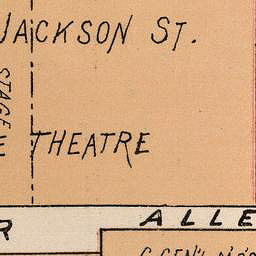 JACKSON ST.
STAGE
E THEATRE
R ALLE